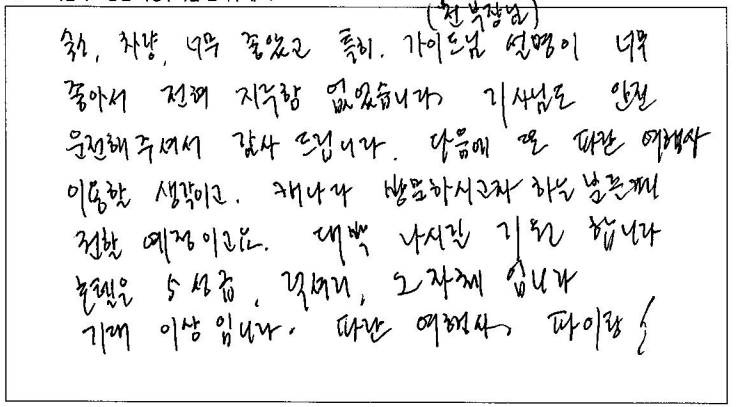 (천 부장님)
숙소, 차량, 너무 좋았고 특히. 가이드님 설명이 너무
좋아서 전혀 지루함 없었습니다. 기사님도 안전
운전해주셔서 감사 드립니다. 다음에 또 파란 여행사
이용할 생각이고. 캐나다 방문하시고자 하는 분들께
전할 예정이고요. 대박 나시길 기원 합니다
호텔은 5성급, 럭셔리, 그 자체 입니다
기대 이상 입니다. 파란 여행사, 파이팅